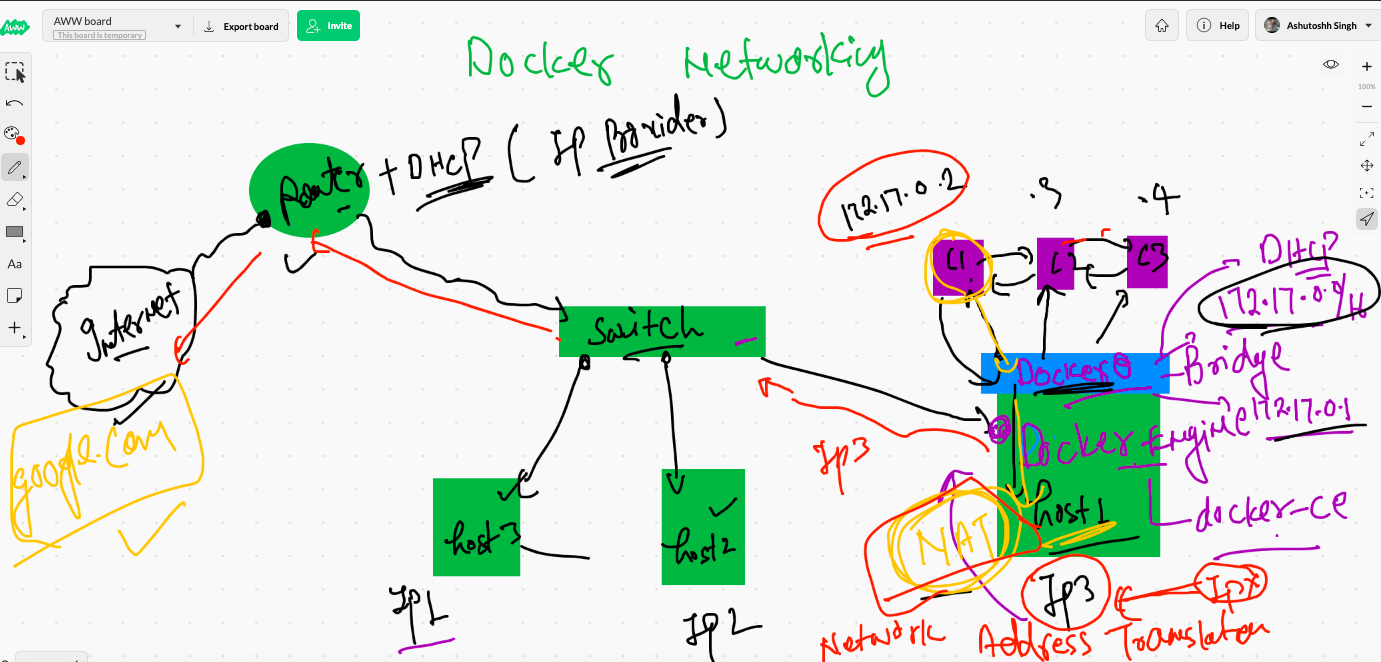 AWW
AWW board
This board is temporary
Export board
Invite
Help
Ashutoshh Singh
100%
Aa
Docker Networking
Router + DHCP ( IP Provider)
Internet
google.com
Switch
host3
host2
IP1
IP2
IP3
172.17.0.2
.3
.4
C1
C3
DHCP
172.17.0.0/16
Docker0
Bridge
172.17.0.1
Docker Engine
docker-ce
host1
NAT
IP3
IPX
Network Address Translation